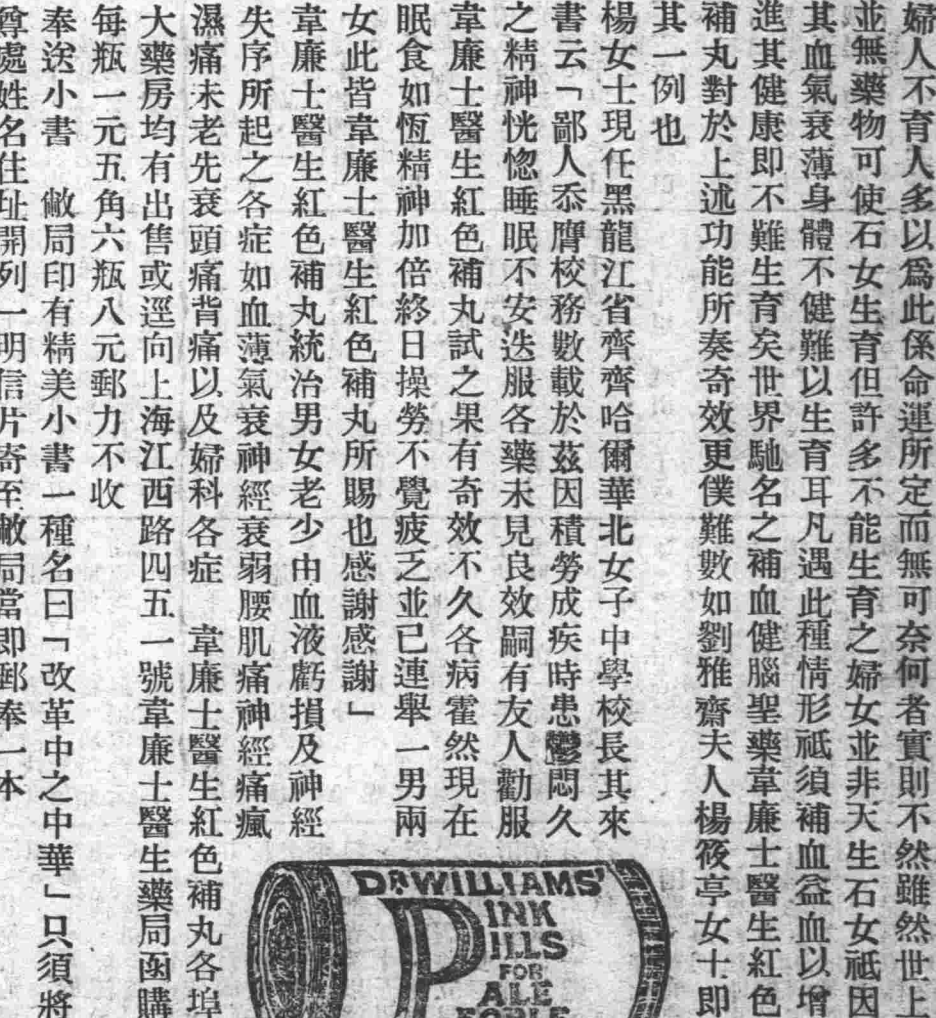 婦人不育人多以爲此係命運所定而無可奈何者實則不然雖然世上
並無藥物可使石女生育但許多不能生育之婦女並非天生石女祗因
其血氣衰薄身體不健難以生育耳凡遇此種情形祗須補血益血以增
進其健康即不難生育矣世界馳名之補血健腦聖藥韋廉士醫生紅色
補丸對於上述功能所奏奇效更僕難數如劉雅齋夫人楊筱亭女士即
其一例也
楊女士現任黑龍江省齊齊哈爾華北女子中學校長其來
書云「鄙人忝膺校務數載於茲因積勞成疾時患鬱悶久
之精神恍惚睡眠不安迭服各藥未見良效嗣有友人勸服
韋廉士醫生紅色補丸試之果有奇效不久各病霍然現在
眠食如恆精神加倍終日操勞不覺疲乏並已連舉一男兩
女此皆韋廉士醫生紅色補丸所賜也感謝感謝」
韋廉士醫生紅色補丸統治男女老少由血液虧損及神經
失序所起之各症如血薄氣衰神經衰弱腰肌痛神經痛瘋
濕痛未老先衰頭痛背痛以及婦科各症 韋廉士醫生紅色補丸各埠
大藥房均有出售或逕向上海江西路四五一號韋廉士醫生藥局函購
每瓶一元五角六瓶八元郵力不收
奉送小書 敝局印有精美小書一種名曰「改革中之中華」只須將
尊處姓名住址開列一明信片寄至敝局當即郵奉一本
DR WILLIAMS'
PINK
PILLS
FOR
PALE
PEOPLE